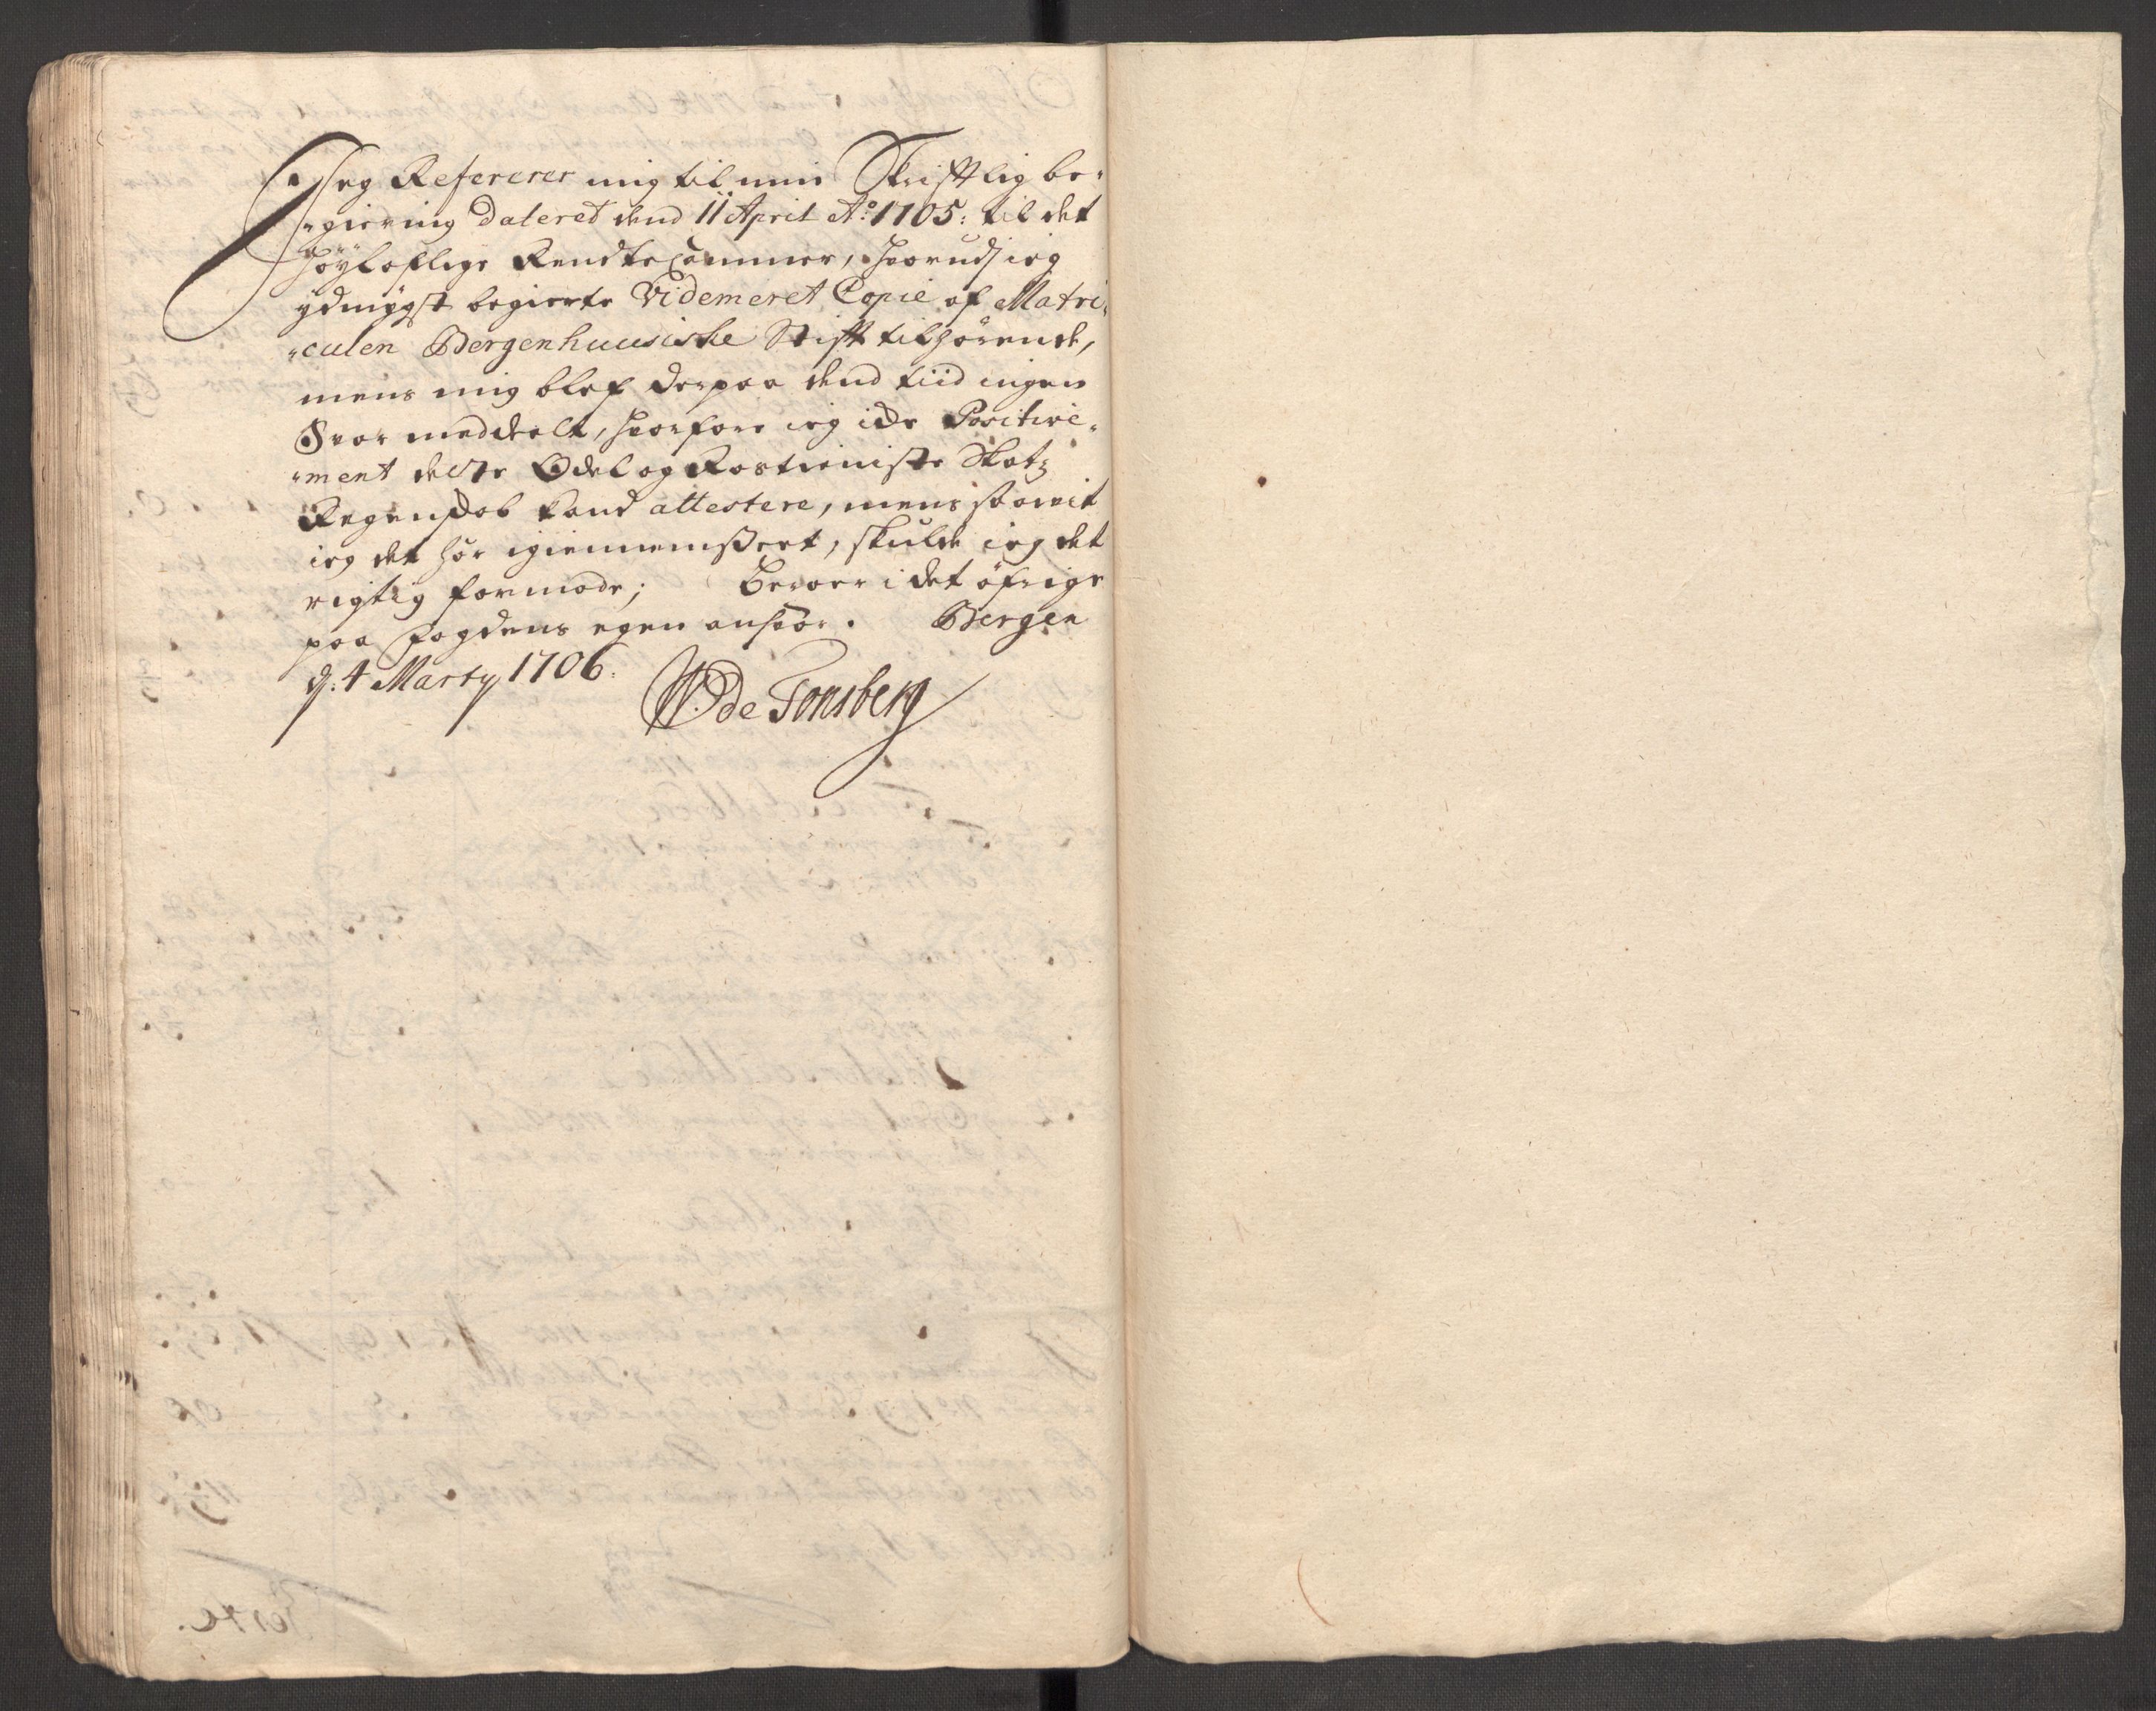 Jeg Refererer mig til min Skrifftlig be-
-giering Dateret dend 11 April A:o 1705: til det
Höÿloflige Rendte Cammer, hvorudj ieg
ÿdmÿgst begierte Videmeret Copie af Matri-
-culen Bergenhuusiske Stifft tilhörende,
mens mig blef derpaa dend tiid ingen
Svar meddelt, hvorfore ieg icke Positive-
-ment dette Odel og Rostieniste Skatz
Regenskab kand attestere, mens saavit
ieg det har igiennemseet, skulde ieg det
rigtig formode; beroer i det öfrige
paa fogdens egen ansvar. Bergen
d: 4 Martÿ 1706.
de Tonsberg